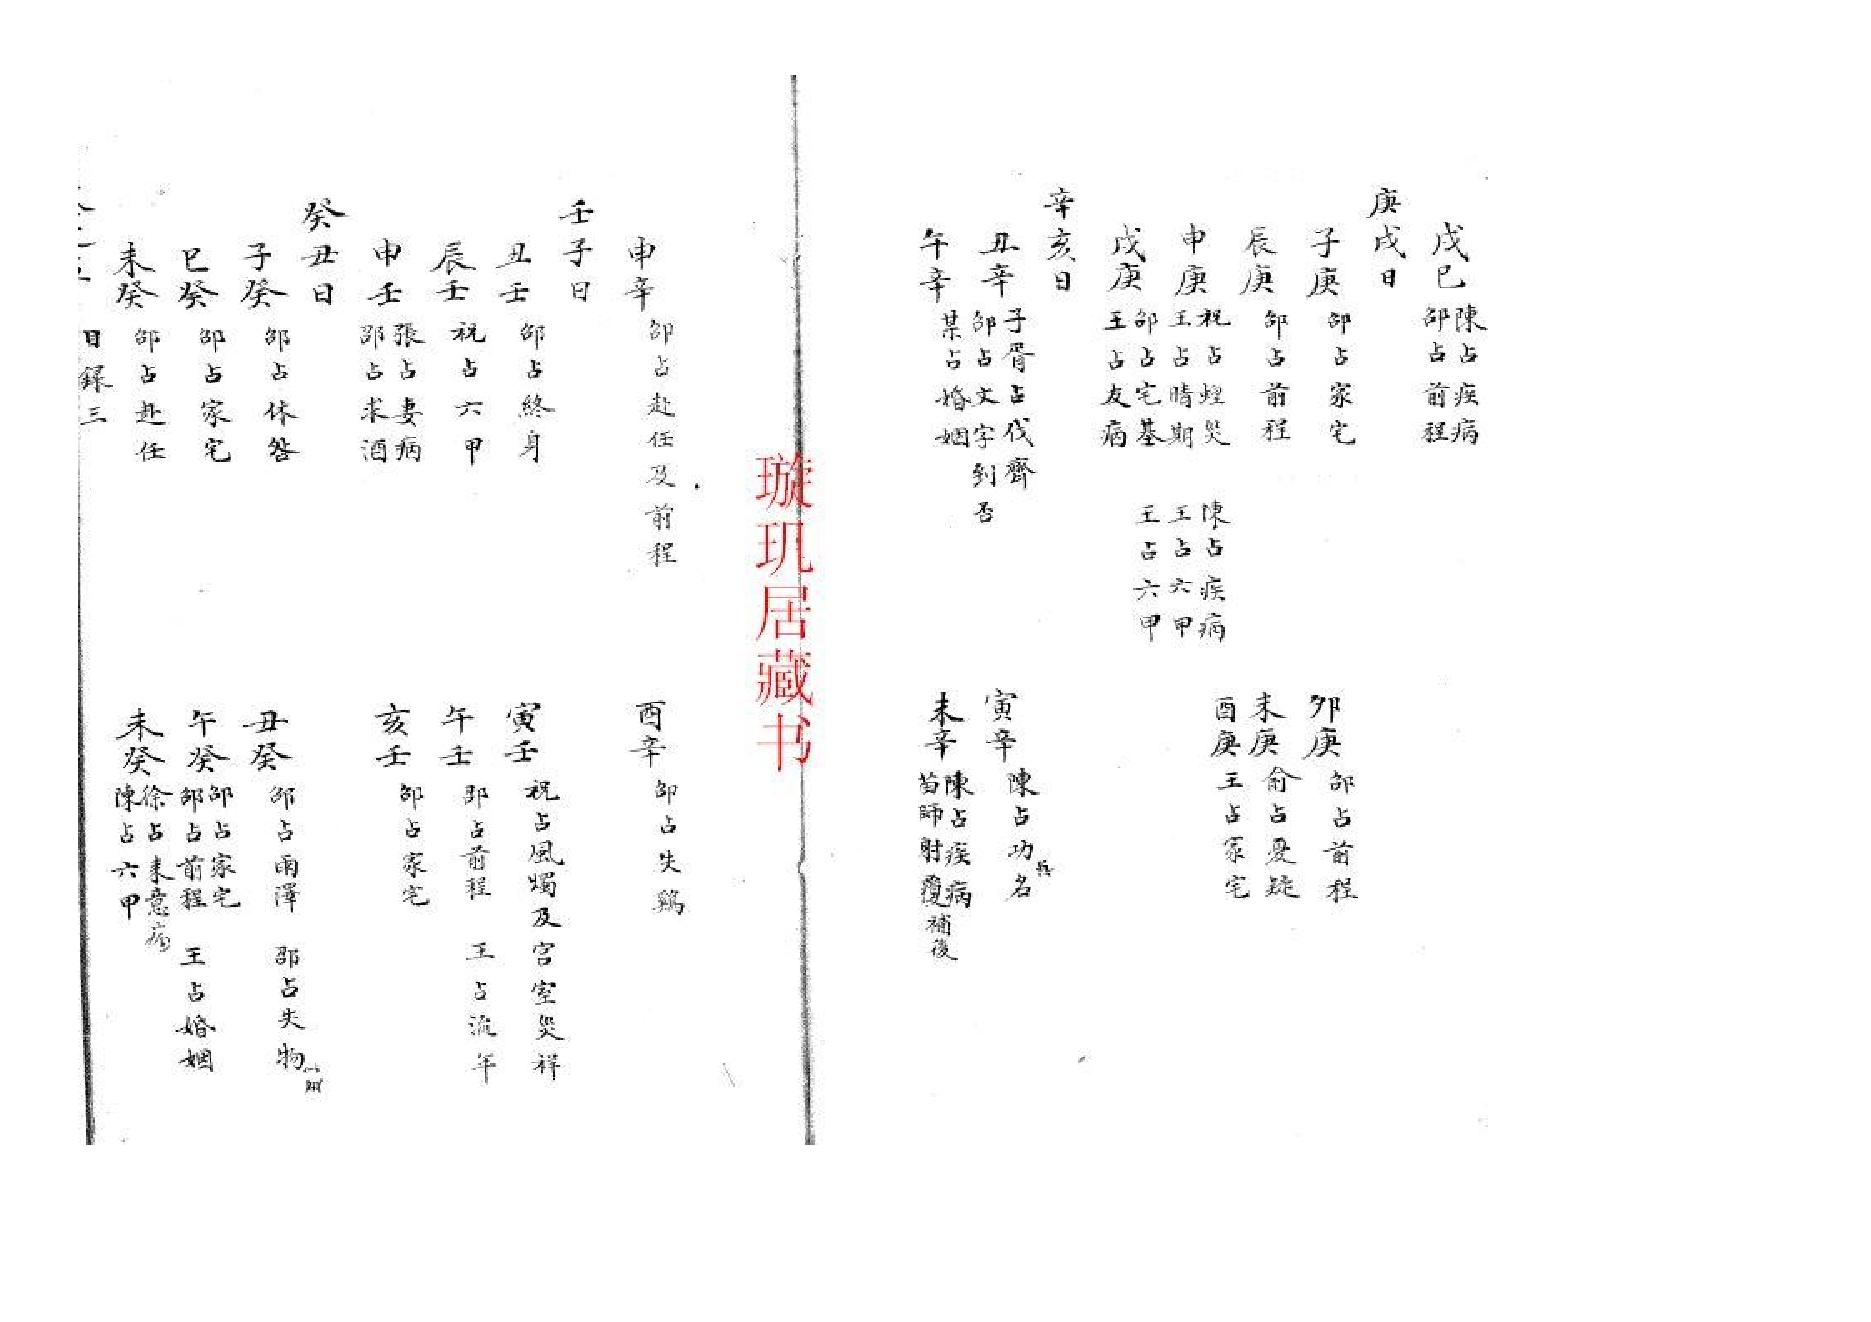 戌己
陳占疾病
邵占前程
庚戌日
子庚
邵占家宅
卯庚
邵占前程
辰庚
邵占前程
未庚
俞占憂疑
申庚
祝占蝗災
陳占疾病
王占晴期
王占六甲
酉庚
王占家宅
戌庚
邵占宅基
王占六甲
王占友病
辛亥日
丑辛
子胥占伐齊
邵占文字到否
寅辛
陳占功名
午辛
某占婚姻
未辛
陳占疾病
苗師射覆
補後
璇玑居藏书
申辛
邵占赴任及前程
酉辛
邵占失鷄
壬子日
丑壬
邵占終身
寅壬
祝占風燭及宫室災祥
辰壬
祝占六甲
午壬
邵占前程
王占流年
申壬
張占妻病
邵占求酒
亥壬
邵占家宅
癸丑日
子癸
邵占休咎
丑癸
邵占雨澤
邵占失物
巳癸
邵占家宅
午癸
邵占家宅
邵占前程
王占婚姻
未癸
邵占赴任
未癸
徐占来意病
陳占六甲
目録三